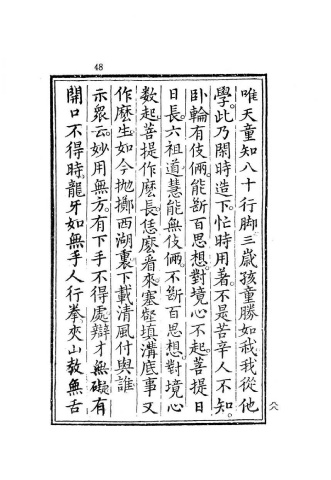 48
唯天童知八十行脚三歲孩童勝如我我從他
學。此乃閑時造下。忙時用著。不是苦辛人不知。
卧輪有伎倆。能斷百思想。對境心不起。菩提日
日長。六祖道慧能無伎倆。不斷百思想。對境心
數起。菩提作麼長。恁麼看來。塞壑填溝底事又
作麼生。如今拋擲西湖裏。下載清風付與誰
示眾云。妙用無方。有下手不得處。辯才無礙。有
開口不得時。龍牙如無手人行拳。夾山教無舌
六八